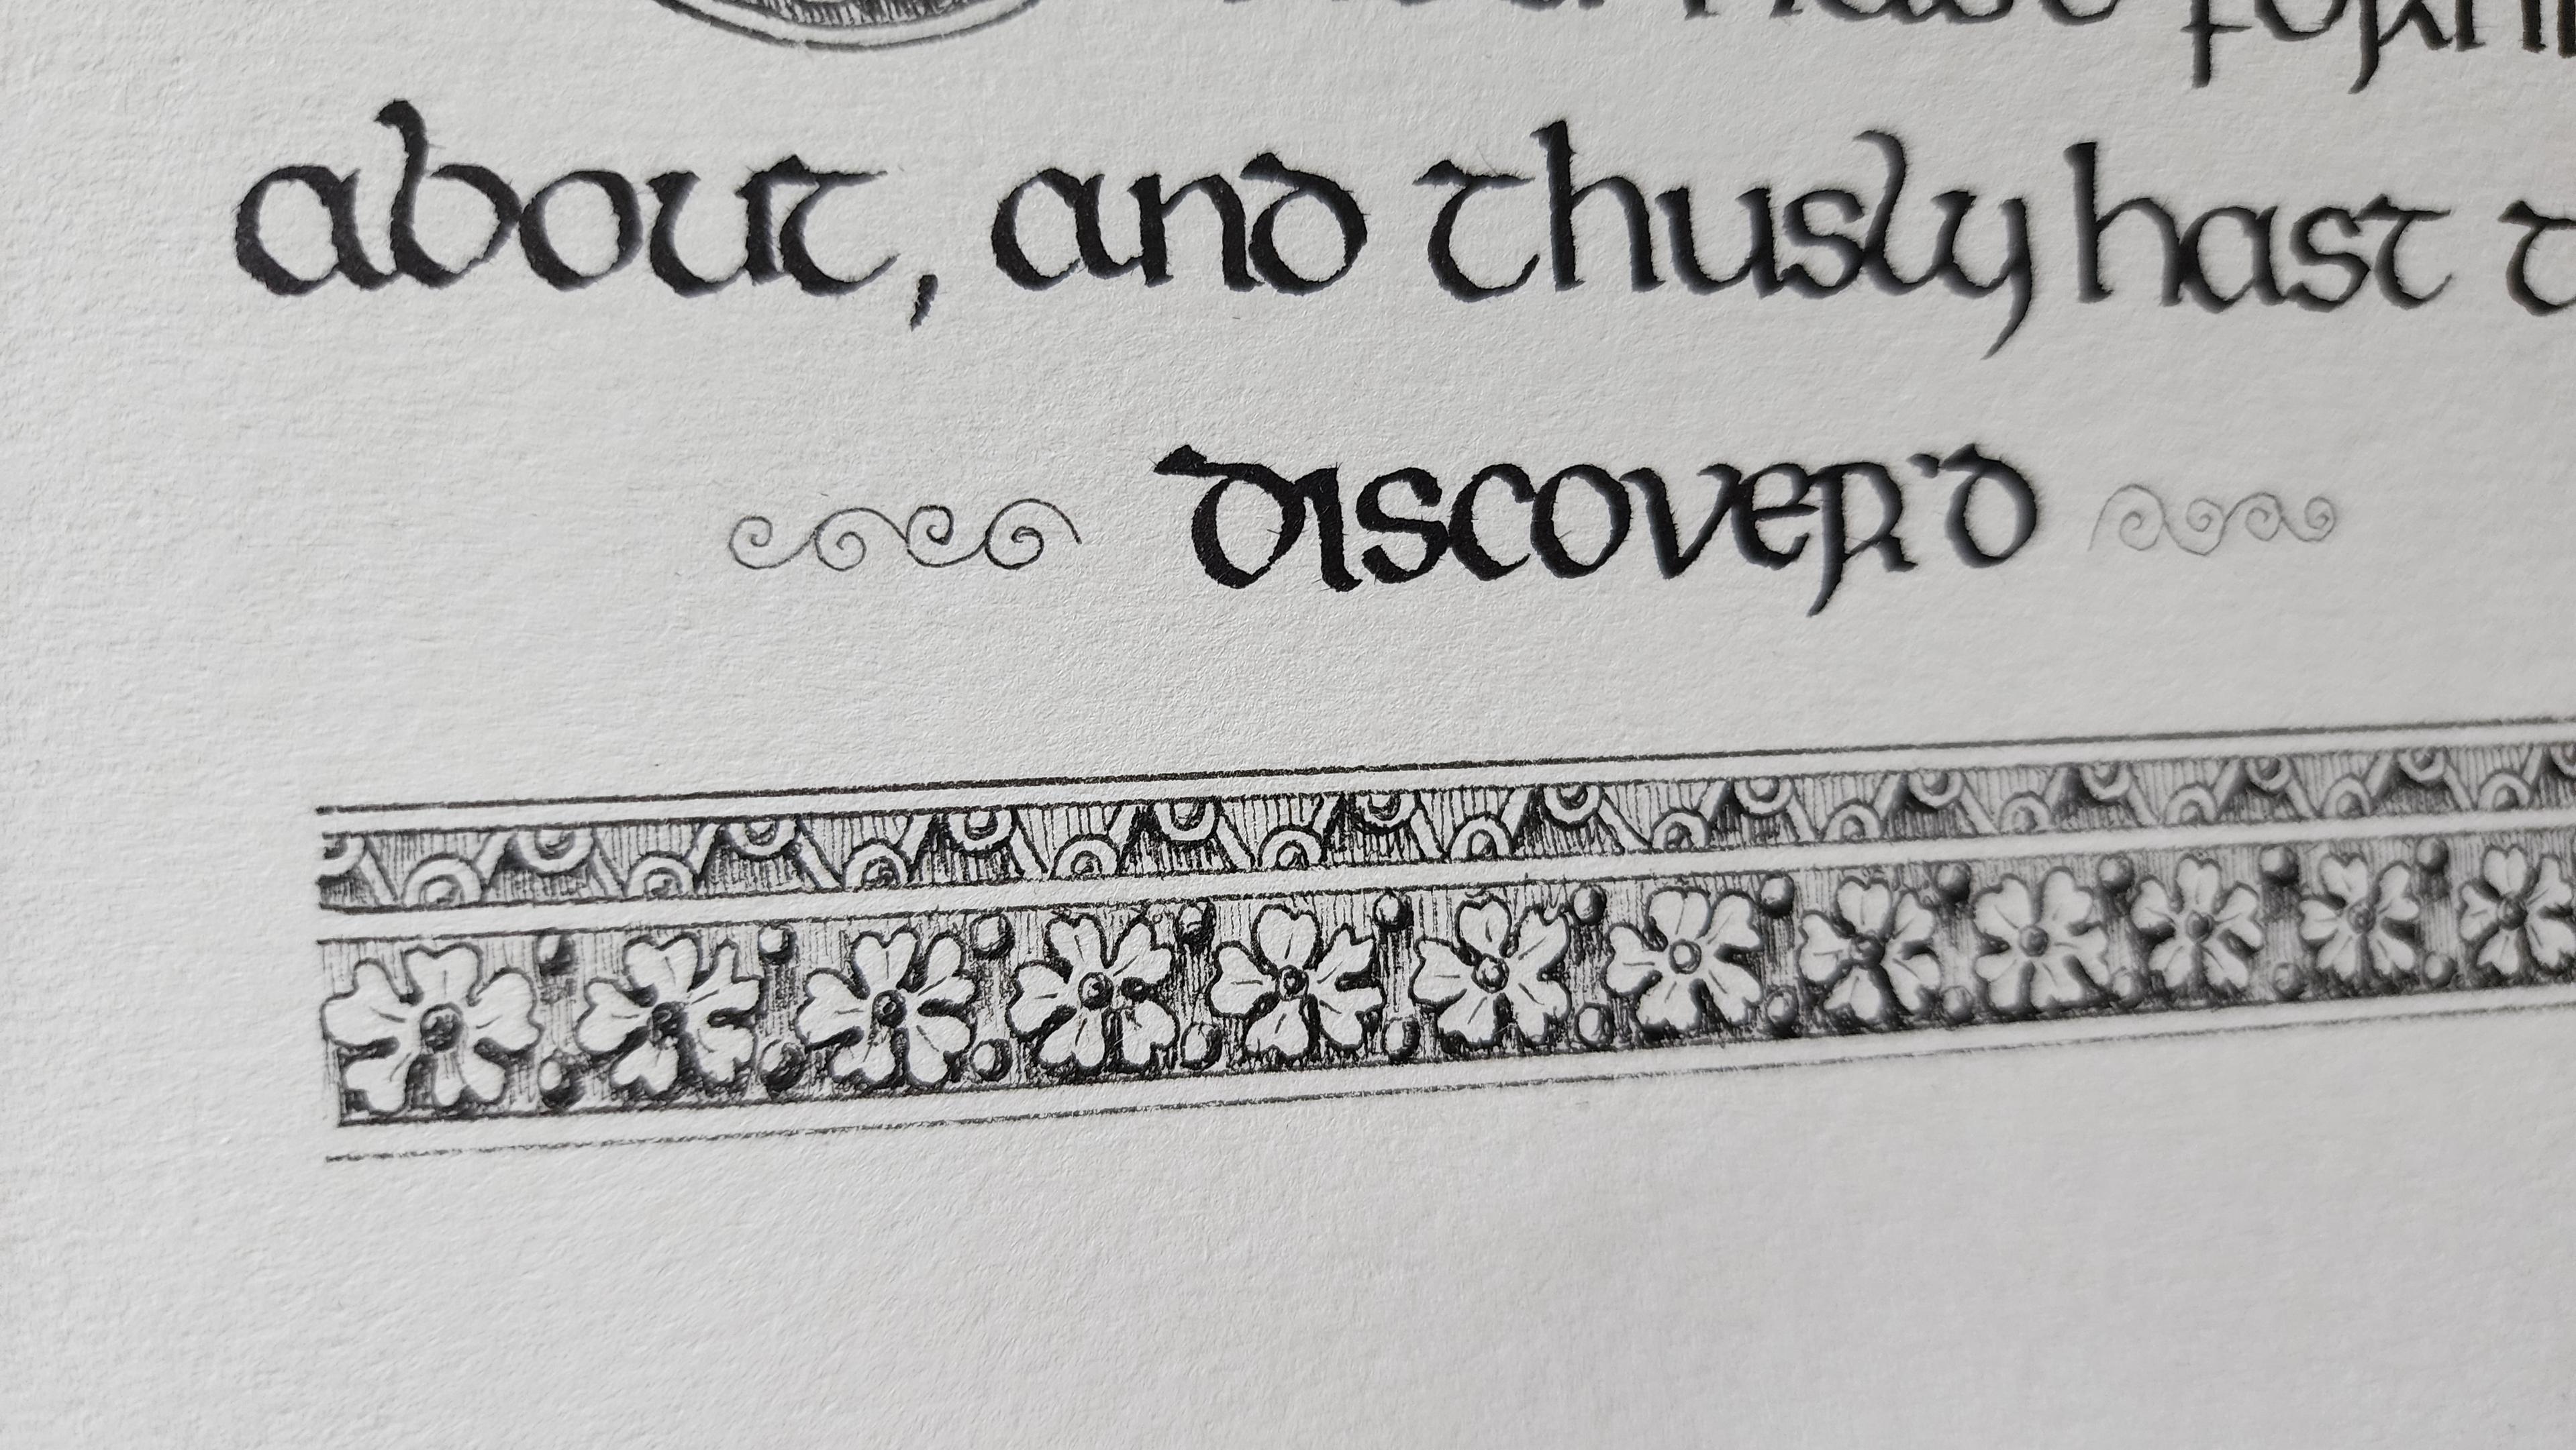 hast
about, and thusly hast
discover'd